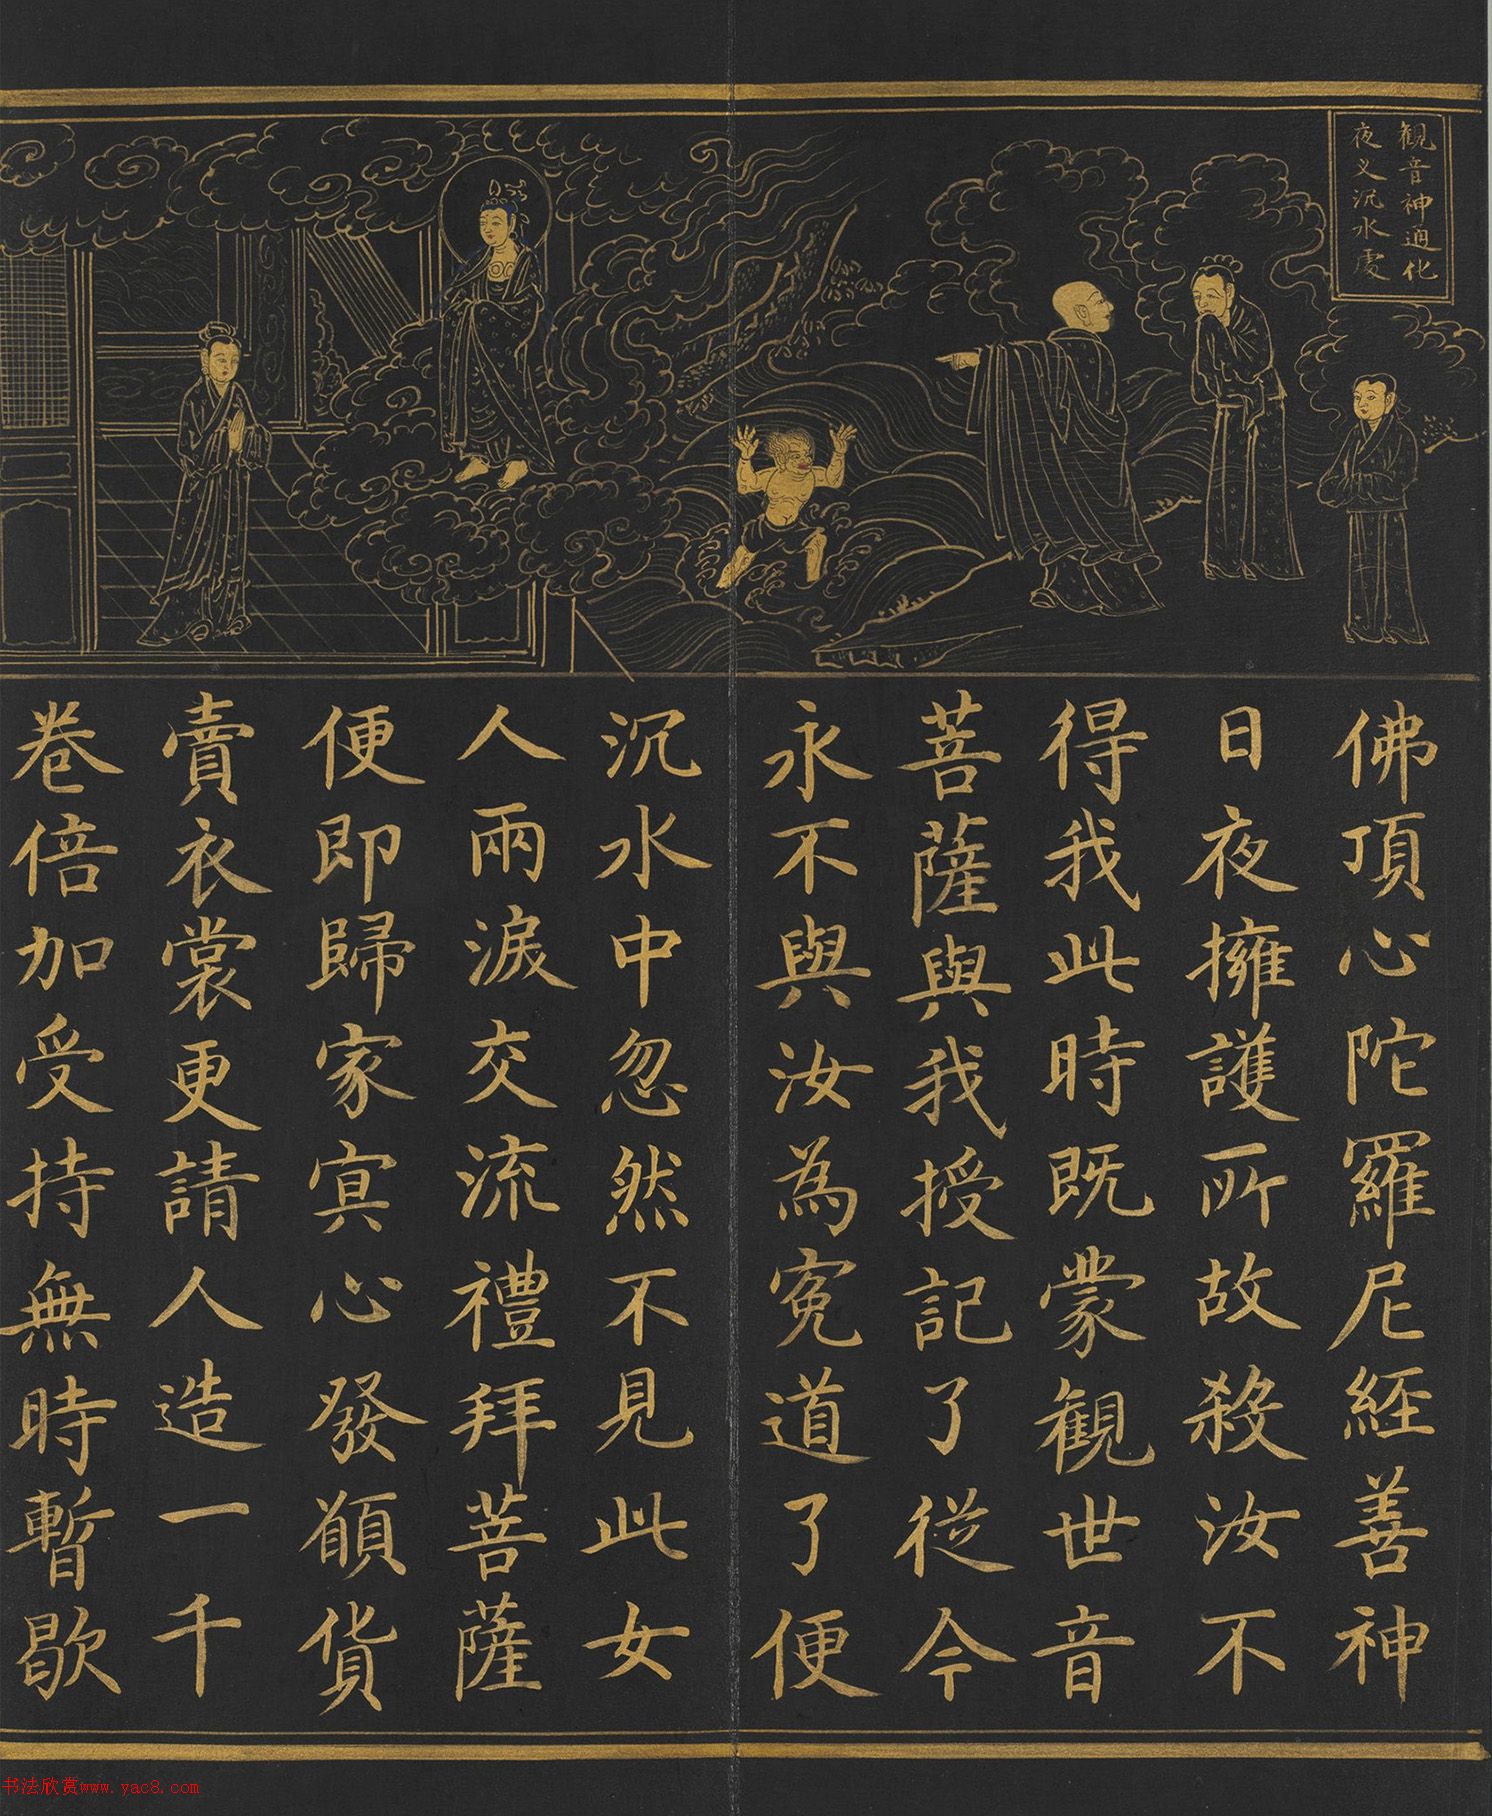 觀音神通化
夜叉沉水處
佛頂心陀羅尼經善神
日夜擁護所故殺汝不
得我此時既蒙觀世音
菩薩與我授記了從今
永不與汝為冤道了便
沉水中忽然不見此女
人兩淚交流禮拜菩薩
便即歸家冥心發願貨
賣衣裳更請人造一千
卷倍加受持無時暫歇
书法欣赏www.yac8.com